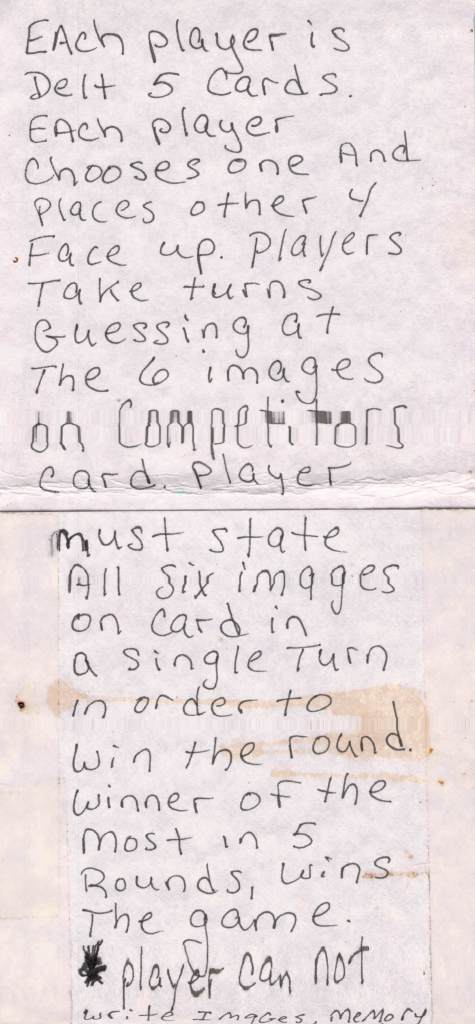 EAch player is
Delt 5 Cards.
EAch player
Chooses one And
places other 4
Face up. Players
Take turns
Guessing at
The 6 images
on Competitors
card. Player
must state
All Six images
on card in
a single Turn
in order to
win the round.
Winner of the
Most in 5
Rounds, wins
The game.
* player can not
write Images. Memory